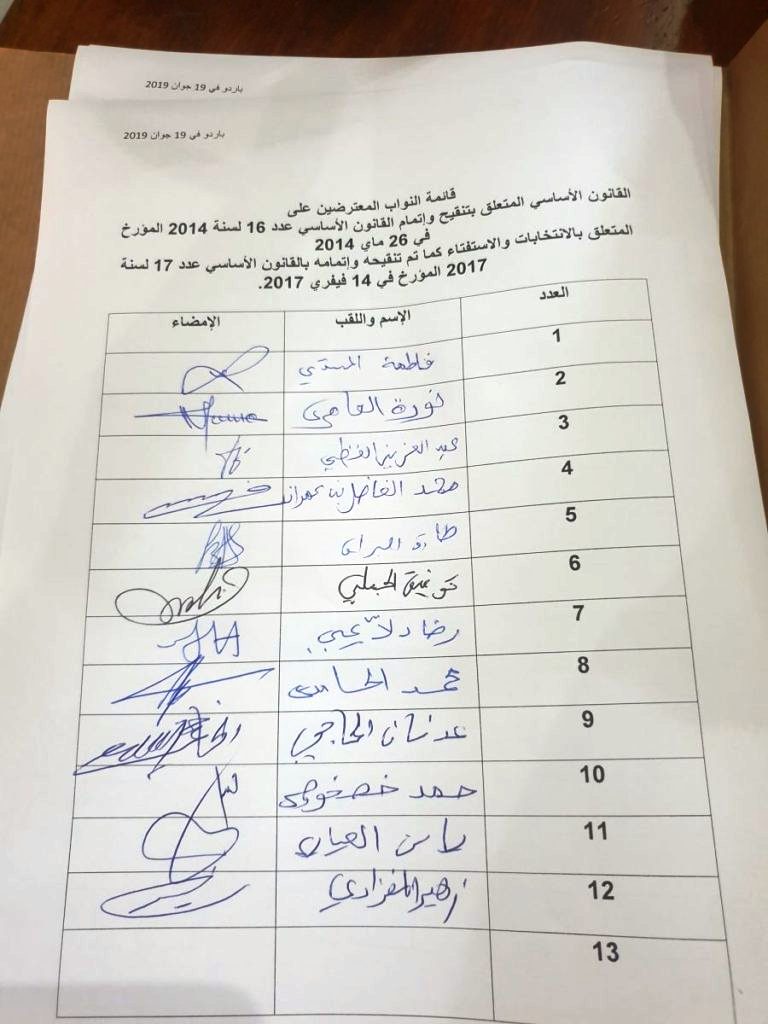 باردو في 19 جوان 2019
باردو في 19 جوان 2019
قائمة النواب المعترضين على
القانون الأساسي المتعلق بتنقيح وإتمام القانون الأساسي عدد 16 لسنة 2014 المؤرخ
في 26 ماي 2014
المتعلق بالانتخابات والاستفتاء كما تم تنقيحه وإتمامه بالقانون الأساسي عدد 17 لسنة
2017 المؤرخ في 14 فيفري 2017.
العدد الإسم واللقب الإمضاء
1 فاطمة المسدي
2 نورة العامري
3 عبد العزيز القطي
4 محمد الفاضل بن عمران
5 طارق
6 توفيق الجملي
7 رضا دلاّعي
8 محمد الحامدي
9 عدنان الحاجي
10 حمد خصخوصي
11
12 زهير المغزاوي
13